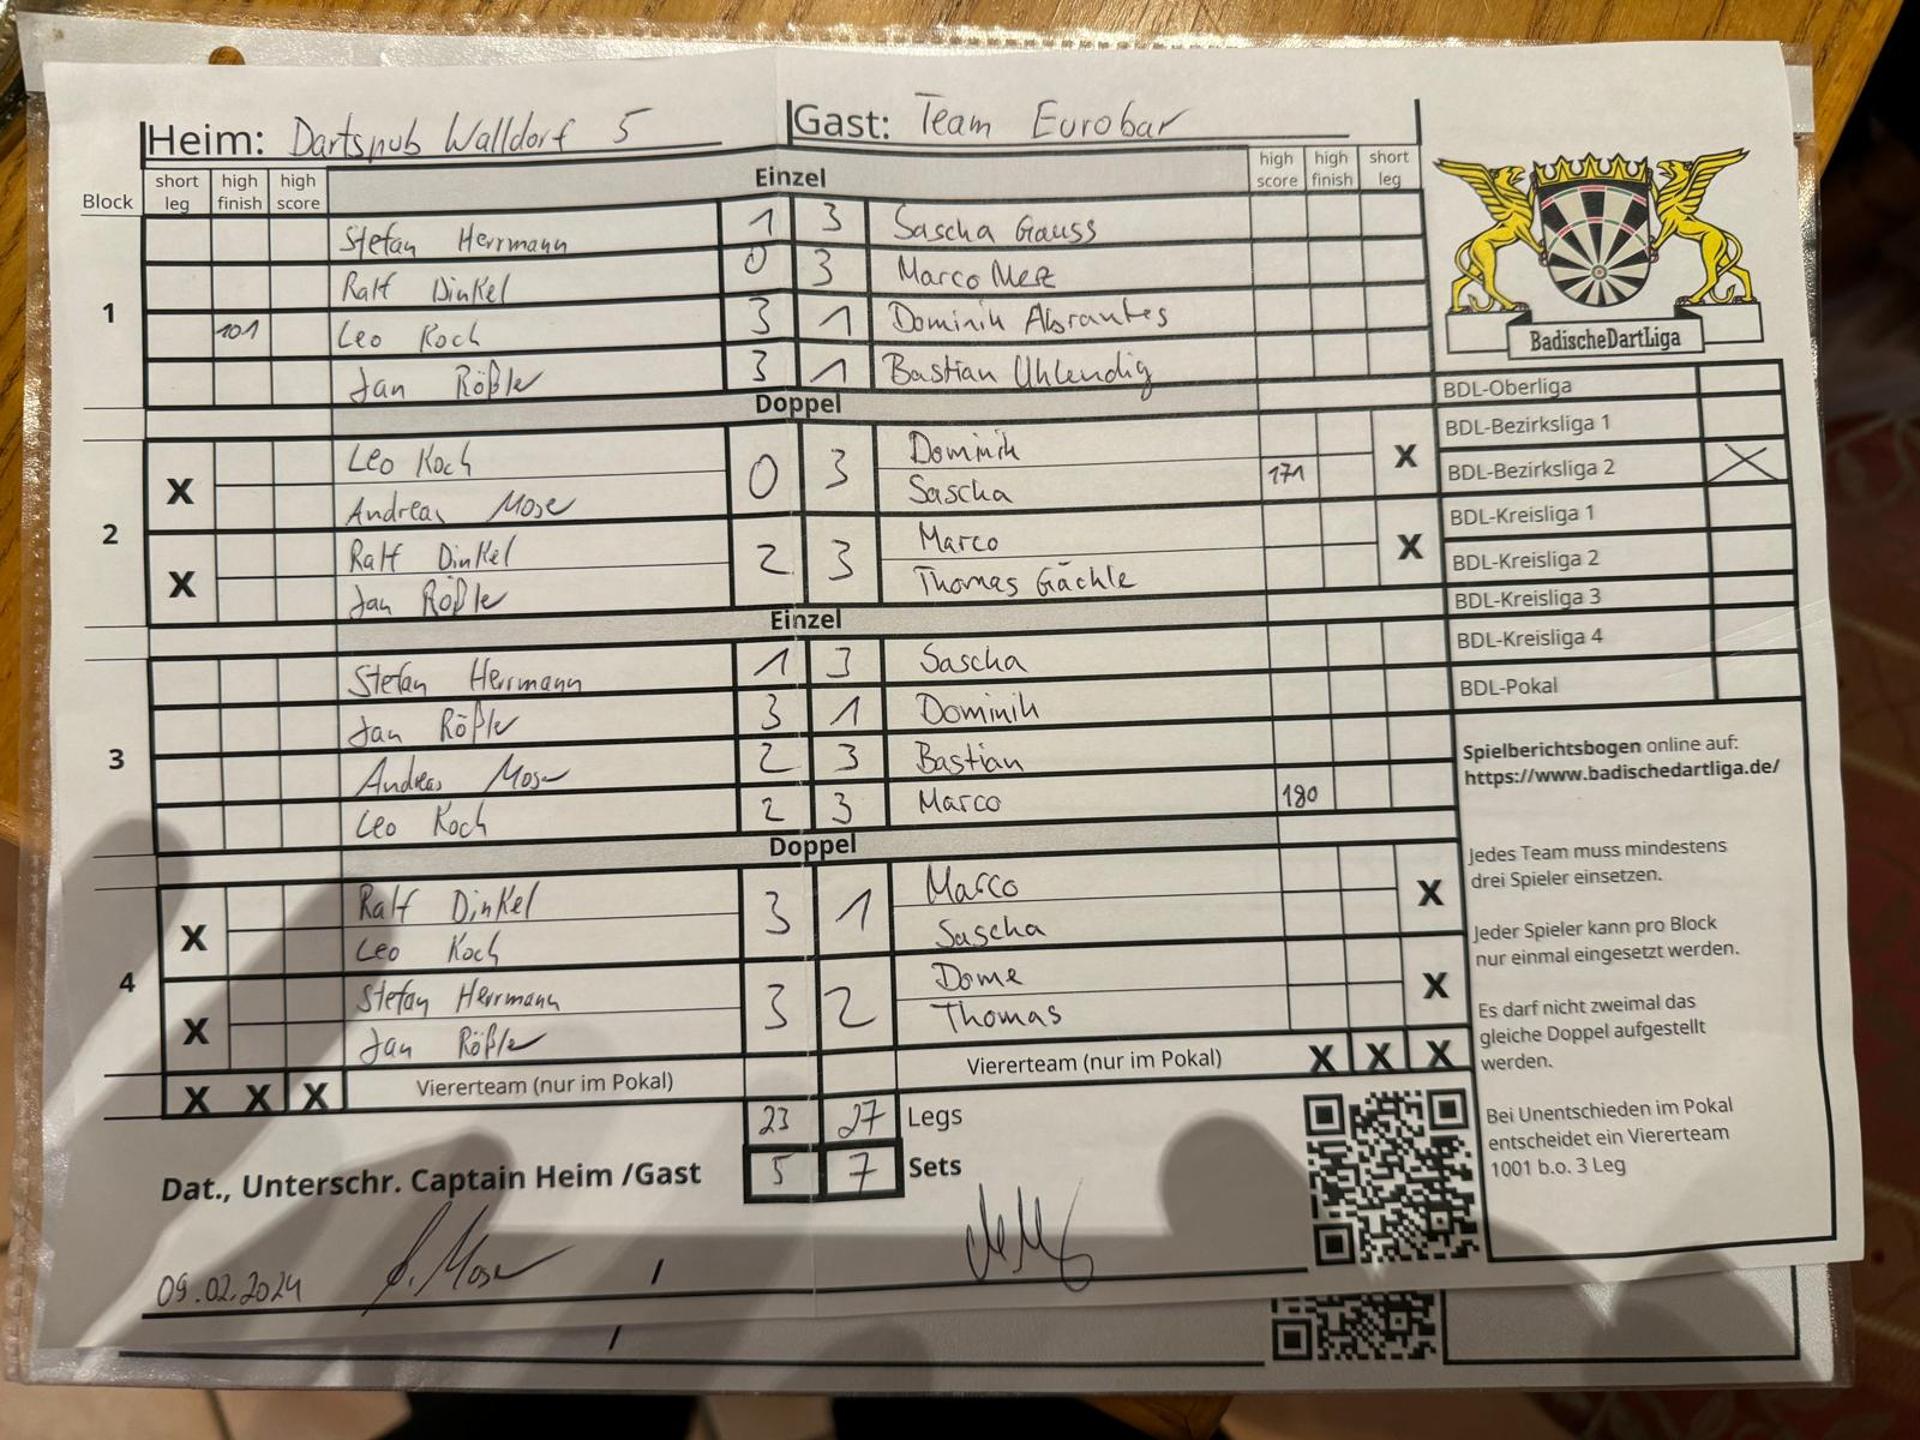 Heim: Dartspub Walldorf 5 Gast: Team Eurobar
Block short leg high finish high score Einzel high score high finish short leg
1
Stefan Herrmann 1 3 Sascha Gauss
Ralf Dinkel 0 3 Marco Merz
101 Leo Koch 3 1 Dominik Abrantes
Jan Rößler 3 1 Bastian Uhlendig
Doppel
2
X Leo Koch 0 3 Dominik X
Andreas Moser Sascha 171
X Ralf Dinkel 2 3 Marco X
Jan Rößler Thomas Gächle
Einzel
3
Stefan Herrmann 1 3 Sascha
Jan Rößler 3 1 Dominik
Andreas Moser 2 3 Bastian
Leo Koch 2 3 Marco 180
Doppel
4
X Ralf Dinkel 3 1 Marco X
Leo Koch Sascha
X Stefan Herrmann 3 2 Dome X
Jan Rößler Thomas
X X X Viererteam (nur im Pokal) Viererteam (nur im Pokal) X X X
23 27 Legs
5 7 Sets
Dat., Unterschr. Captain Heim /Gast
09.02.2024 A. Moser /
BadischeDartLiga
BDL-Oberliga
BDL-Bezirksliga 1
BDL-Bezirksliga 2 X
BDL-Kreisliga 1
BDL-Kreisliga 2
BDL-Kreisliga 3
BDL-Kreisliga 4
BDL-Pokal
Spielberichtsbogen online auf:
https://www.badischedartliga.de/
Jedes Team muss mindestens
drei Spieler einsetzen.
Jeder Spieler kann pro Block
nur einmal eingesetzt werden.
Es darf nicht zweimal das
gleiche Doppel aufgestellt
werden.
Bei Unentschieden im Pokal
entscheidet ein Viererteam
1001 b.o. 3 Leg
/